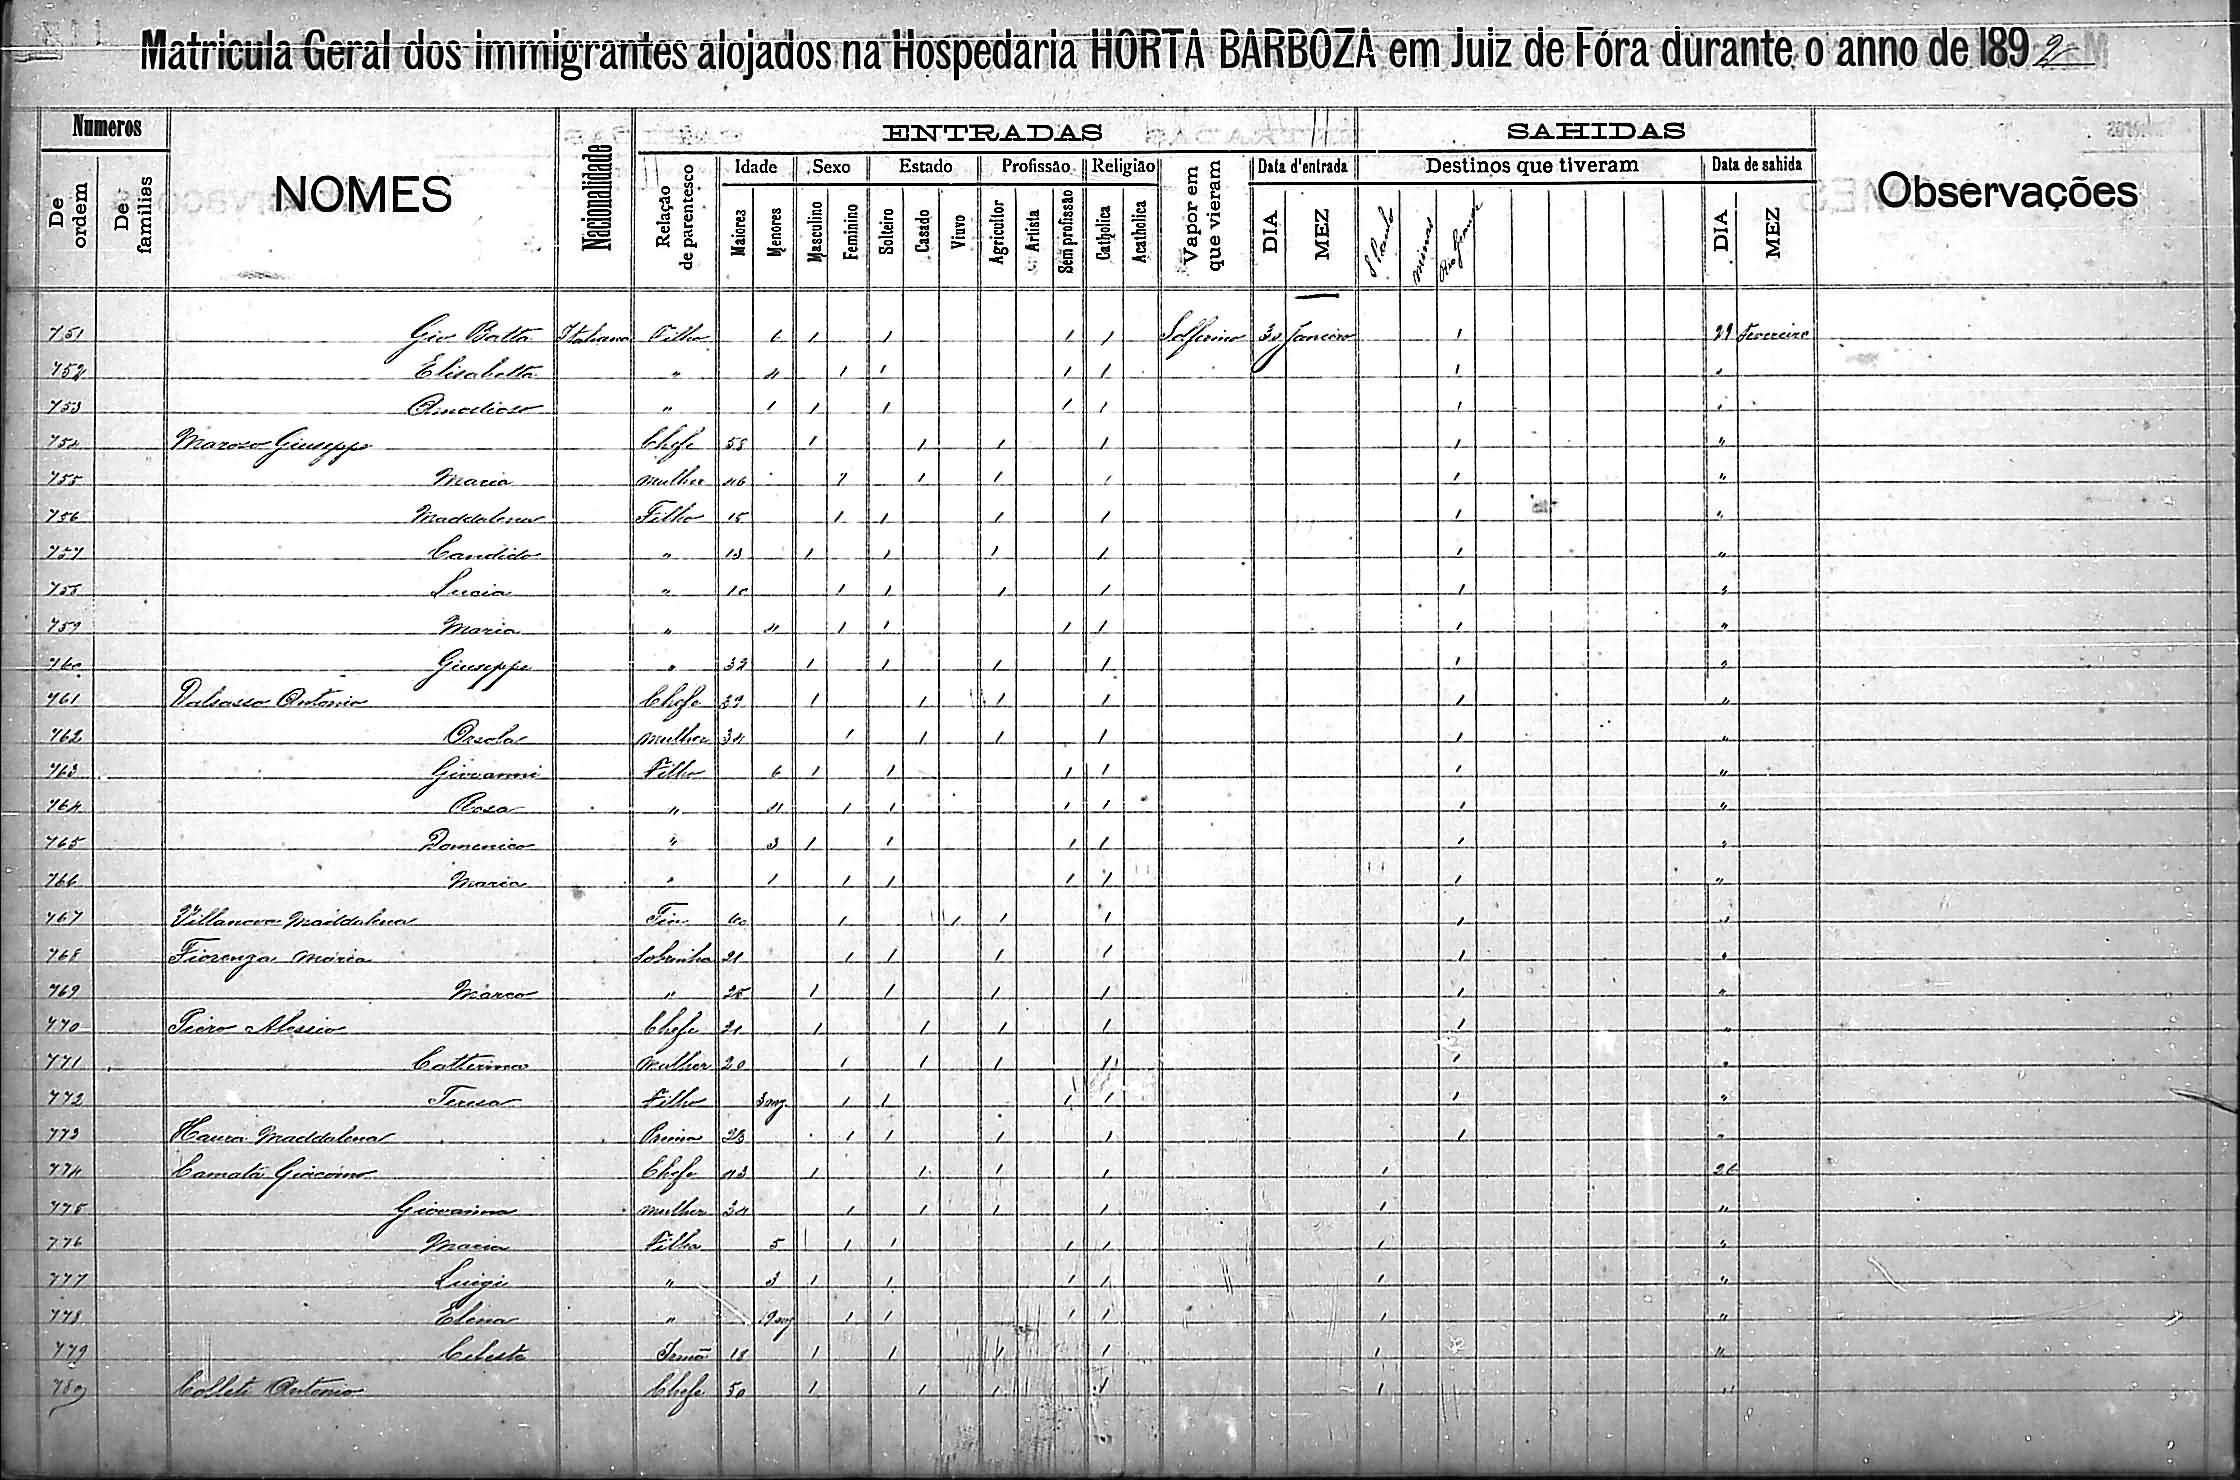 Matricula Geral dos immigrantes alojados na Hospedaria HORTA BARBOZA em Juiz de Fóra durante o anno de 1892
Numeros NOMES Nacionalidade ENTRADAS SAHIDAS Observações
De ordem De familias Relação de parentesco Idade Sexo Estado Profissão Religião Vapor em que vieram Data d'entrada Destinos que tiveram Data de sahida
Maiores Menores Masculino Feminino Solteiro Casado Viuvo Agricultor Artista Sem profissão Catholica Acatholica DIA MEZ S Paulo Minas Rio Grande DIA MEZ
751 Gio Batta Italiana Filho 6 1 1 1 1 Solferino 30 Janeiro 1 29 Fevereiro
752 Elisabetta " 4 1 1 1 1 1 "
753 " 1 1 1 1 1 1 "
754 Maroso Giuseppe Chefe 58 1 1 1 1 1 "
755 Maria Mulher 46 1 1 1 1 1 "
756 Maddalena Filho 15 1 1 1 1 1 "
757 Candido " 13 1 1 1 1 1 "
758 Lucia " 10 1 1 1 1 1 "
759 Maria " 4 1 1 1 1 1 "
760 Giuseppe " 32 1 1 1 1 1 "
761 Dalsasso Antonio Chefe 39 1 1 1 1 1 "
762 Orsola Mulher 34 1 1 1 1 1 "
763 Giovanni Filho 6 1 1 1 1 1 "
764 Rosa " 4 1 1 1 1 1 "
765 Domenico " 3 1 1 1 1 1 "
766 Maria " 1 1 1 1 1 1 "
767 Villanova Maddalena Tia 60 1 1 1 1 1 "
768 Fiorenza Maria Sobrinha 21 1 1 1 1 1 "
769 Marco " 25 1 1 1 1 1 "
770 Alessio Chefe 21 1 1 1 1 1 "
771 Catterina Mulher 20 1 1 1 1 1 "
772 Teresa Filho 3 mz 1 1 1 1 1 "
773 Maddalena Prima 23 1 1 1 1 1 "
774 Camata Giacomo Chefe 43 1 1 1 1 1 26
775 Giovanna Mulher 34 1 1 1 1 1 "
776 Maria Filha 5 1 1 1 1 1 "
777 Luigi " 3 1 1 1 1 1 "
778 Elena " 9 mz 1 1 1 1 1 "
779 Celeste Irmã 18 1 1 1 1 1 "
780 Collet Antonio Chefe 50 1 1 1 1 1 "